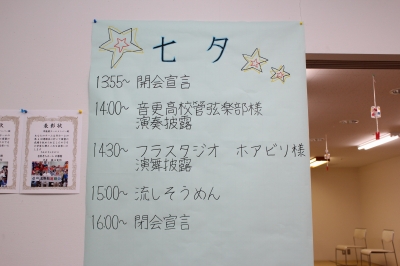 七夕
13:55~ 開会宣言
14:00~ 音更高校管弦楽部様
演奏披露
14:30~ フラスタジオ ホアピリ様
演舞披露
15:00~ 流しそうめん
16:00~ 閉会宣言
表彰状